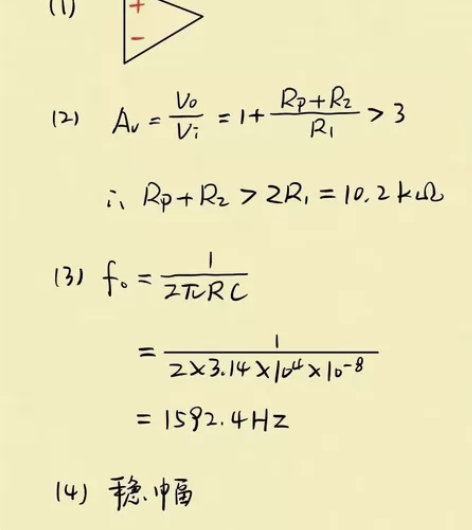 (1)
+
−
(2) Av = Vo/Vi = 1 + (Rp+R2)/R1 > 3
∴ Rp+R2 > 2R1 = 10.2kΩ
(3) f₀ = 1/(2πRC)
= 1/(2×3.14×10⁴×10⁻⁸)
= 1592.4Hz
(4) 稳幅